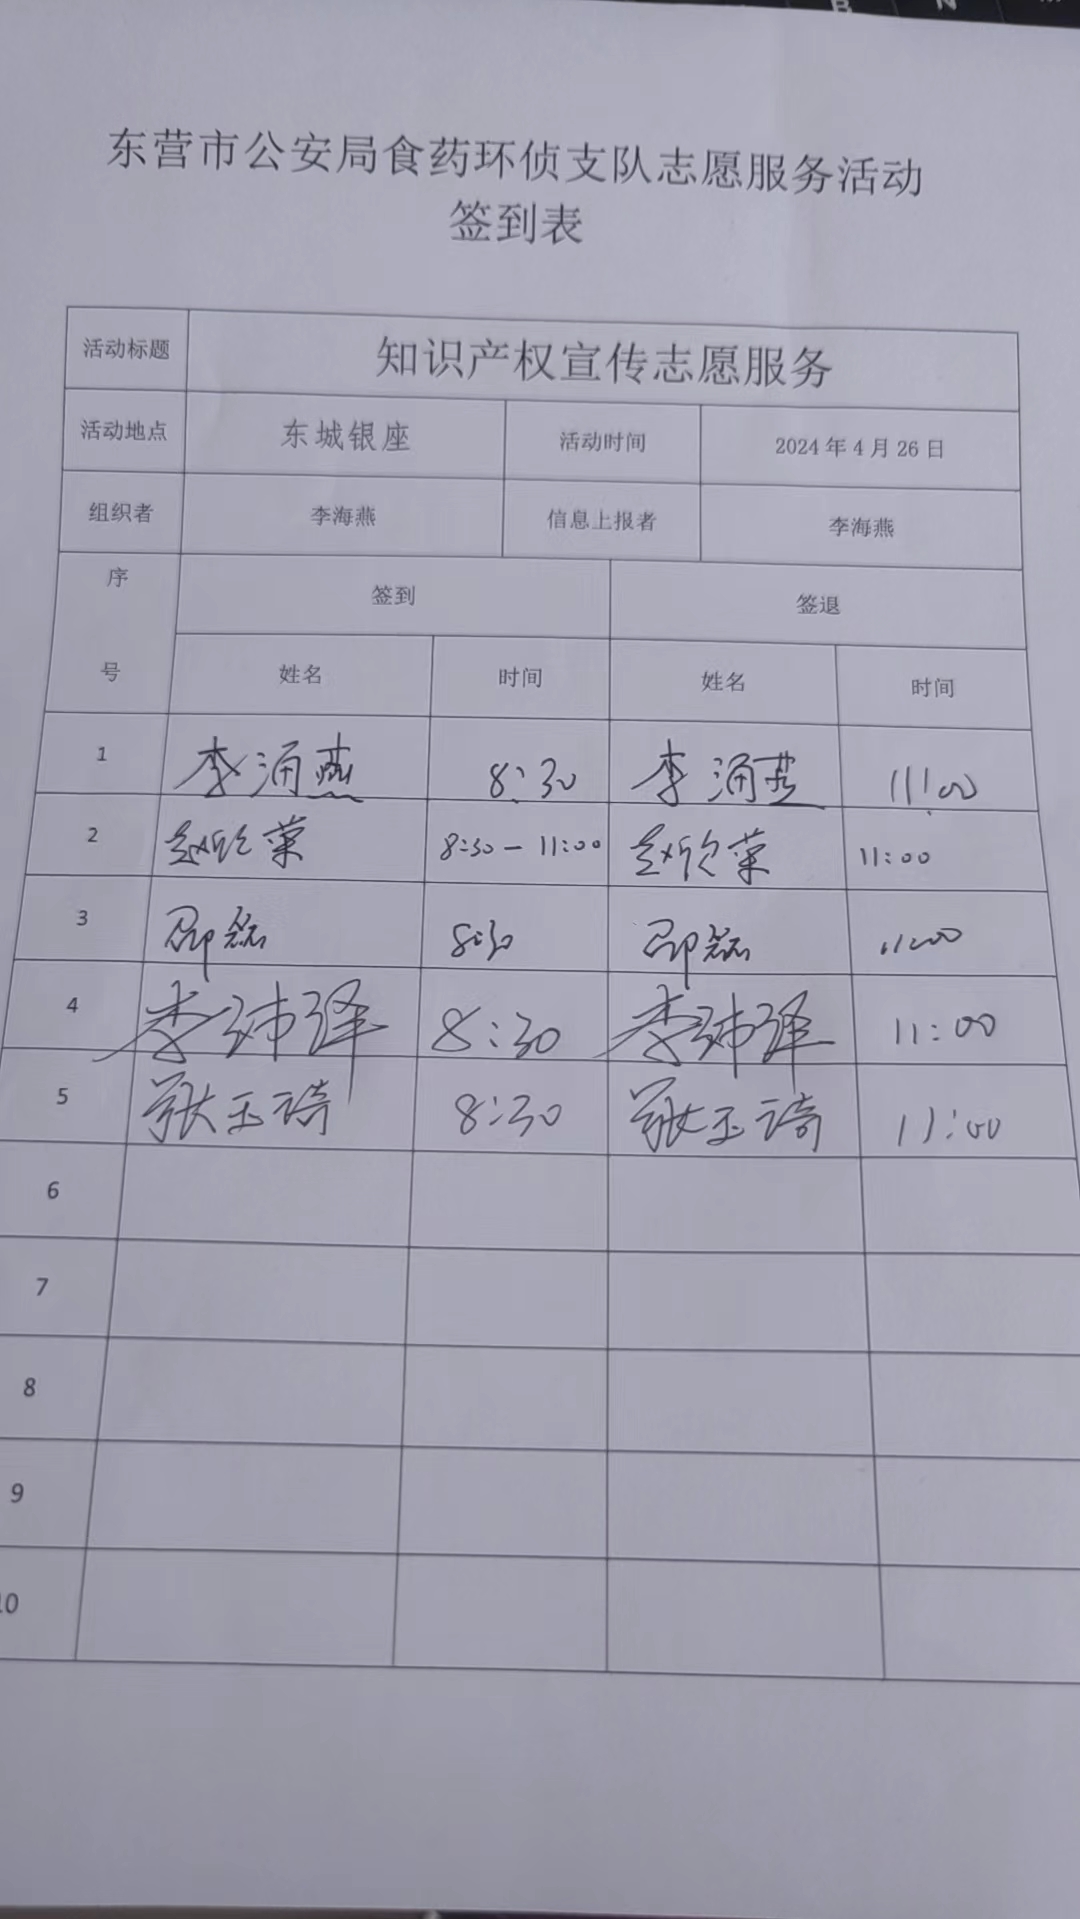 东营市公安局食药环侦支队志愿服务活动
签到表
活动标题 知识产权宣传志愿服务
活动地点 东城银座 活动时间 2024年4月26日
组织者 李海燕 信息上报者 李海燕
序号 签到 签退
姓名 时间 姓名 时间
1 李海燕 8:30 李海燕 11:00
2 赵欣荣 8:30-11:00 赵欣荣 11:00
3 邵磊 8:30 邵磊 11:00
4 李沛泽 8:30 李沛泽 11:00
5 张玉琦 8:30 张玉琦 11:00
6
7
8
9
10